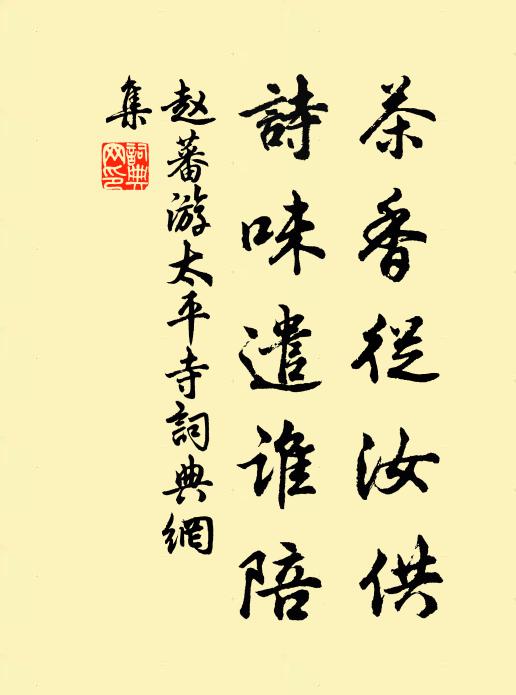 茶香從汝供
詩味遣谁陪
赵蕃游太平寺詞典網
集
詞典網印